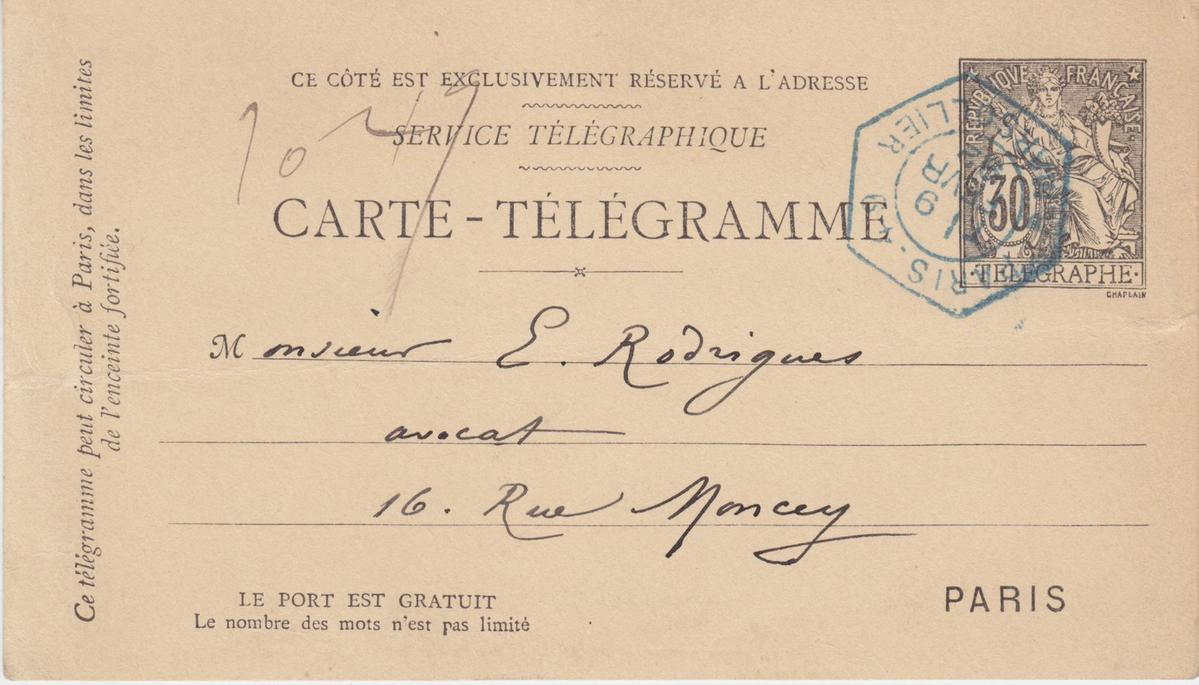 CE CÔTÉ EST EXCLUSIVEMENT RÉSERVÉ A L'ADRESSE
SERVICE TÉLÉGRAPHIQUE
CARTE-TÉLÉGRAMME
REPVBLIQVE FRANÇAISE
30
TÉLÉGRAPHE
CHAPLAIN
PARIS
Monsieur E. Rodrigues
avocat
16. Rue Moncey
LE PORT EST GRATUIT
Le nombre des mots n'est pas limité
PARIS
Ce télégramme peut circuler à Paris, dans les limites
de l'enceinte fortifiée.